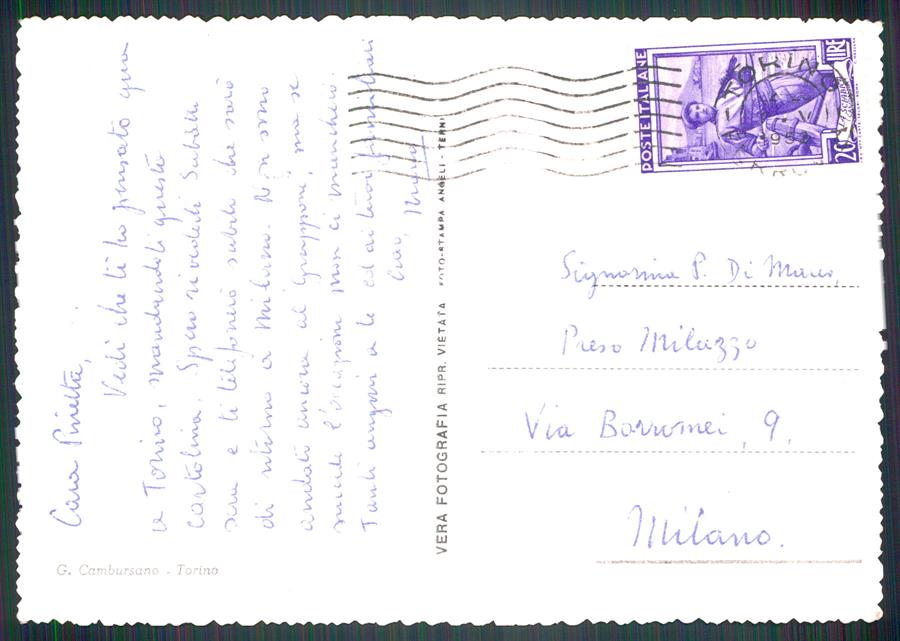 Cara Pinetta,
Vedi che ti ho pensato qua
a Torino, mandandoti questa
cartolina. Spero rivederti Sabato
sera e ti telefonerò subito che sarò
di ritorno a Milano. Non sono
andato ancora al ma se
succede l'occasione non ci mancherò.
Tanti auguri a te ed ai tuoi famigliari
Ciao,
G. Cambursano - Torino
VERA FOTOGRAFIA RIPR. VIETATA FOTO-STAMPA ANGELI - TERNI
POSTE ITALIANE
LIRE
20
TORINO
Signorina P. Di Mauro,
Preso Milazzo
Via Borromei, 9.
Milano.